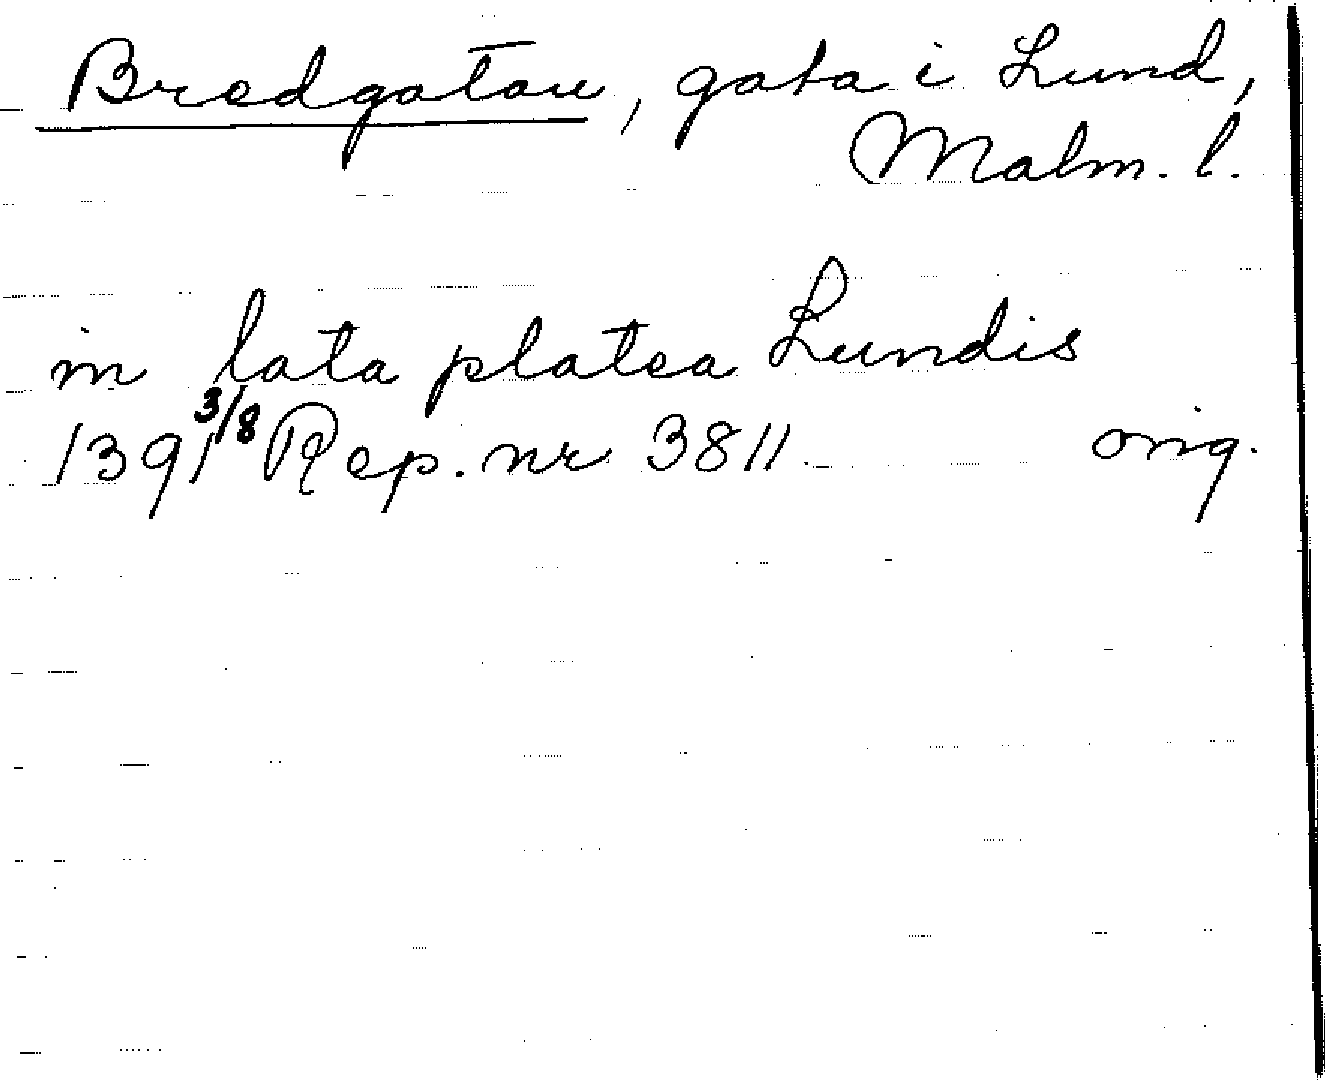 Bredgatan, gata i Lund,
Malm. l.
in lata platea Lundis
1391 3/8 Rep. nr 3811. orig.